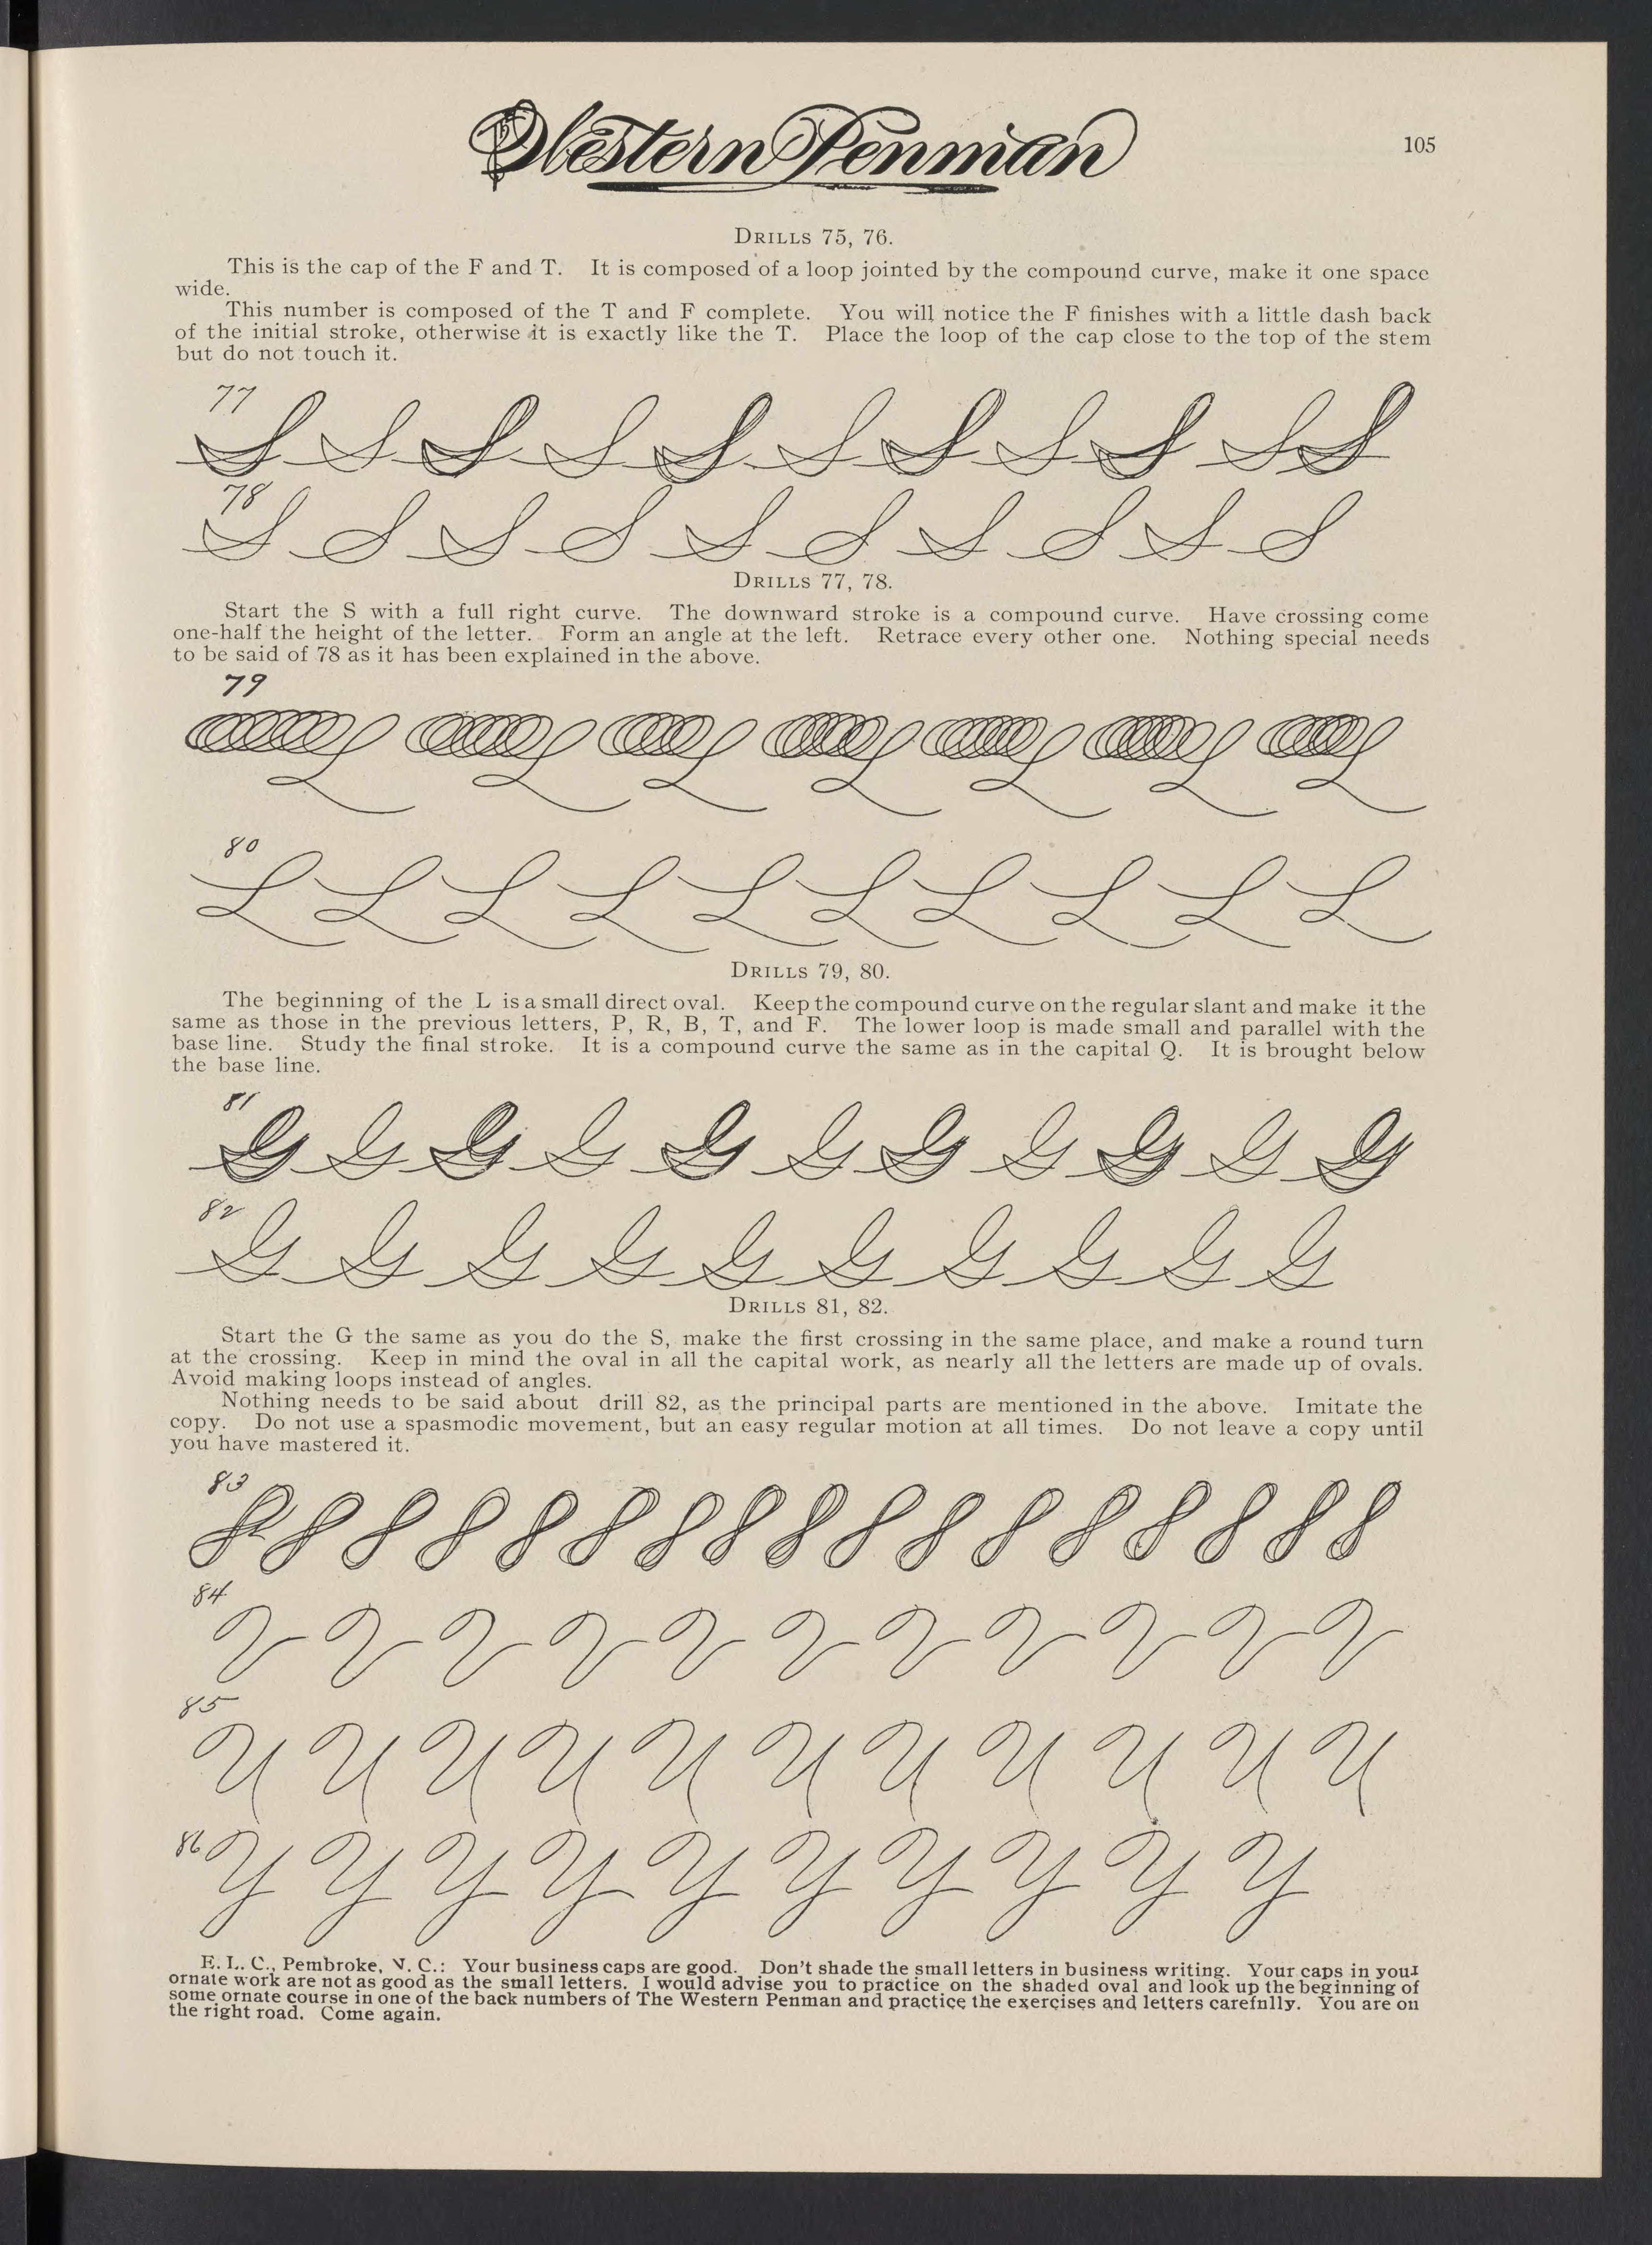 Western Penman
105
DRILLS 75, 76.
This is the cap of the F and T. It is composed of a loop jointed by the compound curve, make it one space
wide.
This number is composed of the T and F complete. You will notice the F finishes with a little dash back
of the initial stroke, otherwise it is exactly like the T. Place the loop of the cap close to the top of the stem
but do not touch it.
77
S S S S S S S S S S S
78
S S S S S S S S S S
DRILLS 77, 78.
Start the S with a full right curve. The downward stroke is a compound curve. Have crossing come
one-half the height of the letter. Form an angle at the left. Retrace every other one. Nothing special needs
to be said of 78 as it has been explained in the above.
79
L L L L L L L
80
L L L L L L L L L L
DRILLS 79, 80.
The beginning of the L is a small direct oval. Keep the compound curve on the regular slant and make it the
same as those in the previous letters, P, R, B, T, and F. The lower loop is made small and parallel with the
base line. Study the final stroke. It is a compound curve the same as in the capital Q. It is brought below
the base line.
81
G G G G G G G G G G G
82
G G G G G G G G G G
DRILLS 81, 82.
Start the G the same as you do the S, make the first crossing in the same place, and make a round turn
at the crossing. Keep in mind the oval in all the capital work, as nearly all the letters are made up of ovals.
Avoid making loops instead of angles.
Nothing needs to be said about drill 82, as the principal parts are mentioned in the above. Imitate the
copy. Do not use a spasmodic movement, but an easy regular motion at all times. Do not leave a copy until
you have mastered it.
83
84
V V V V V V V V V V V
85
U U U U U U U U U U U
86
Y Y Y Y Y Y Y Y Y Y
E. L. C., Pembroke, N. C.: Your business caps are good. Don't shade the small letters in business writing. Your caps in your
ornate work are not as good as the small letters. I would advise you to practice on the shaded oval and look up the beginning of
some ornate course in one of the back numbers of The Western Penman and practice the exercises and letters carefnlly. You are on
the right road. Come again.